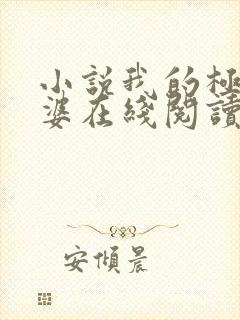 小説我的極
婆在綫閱讀
安傾晨